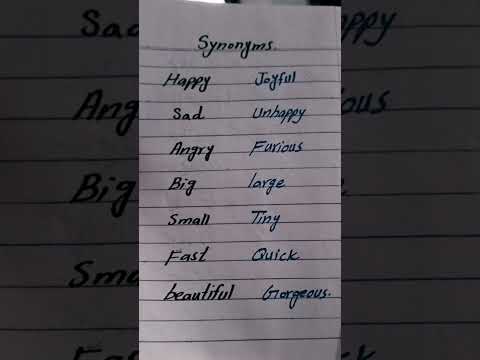 Synonyms.
Happy Joyful
Sad Unhappy
Angry Furious
Big large
Small Tiny
Fast Quick
beautiful Gorgeous.